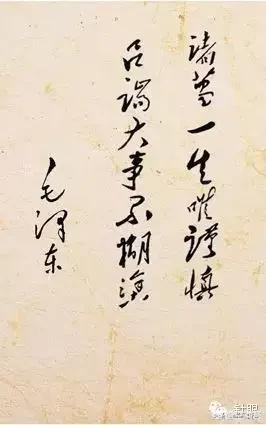 诸葛一生唯谨慎
吕端大事不糊涂
毛泽东